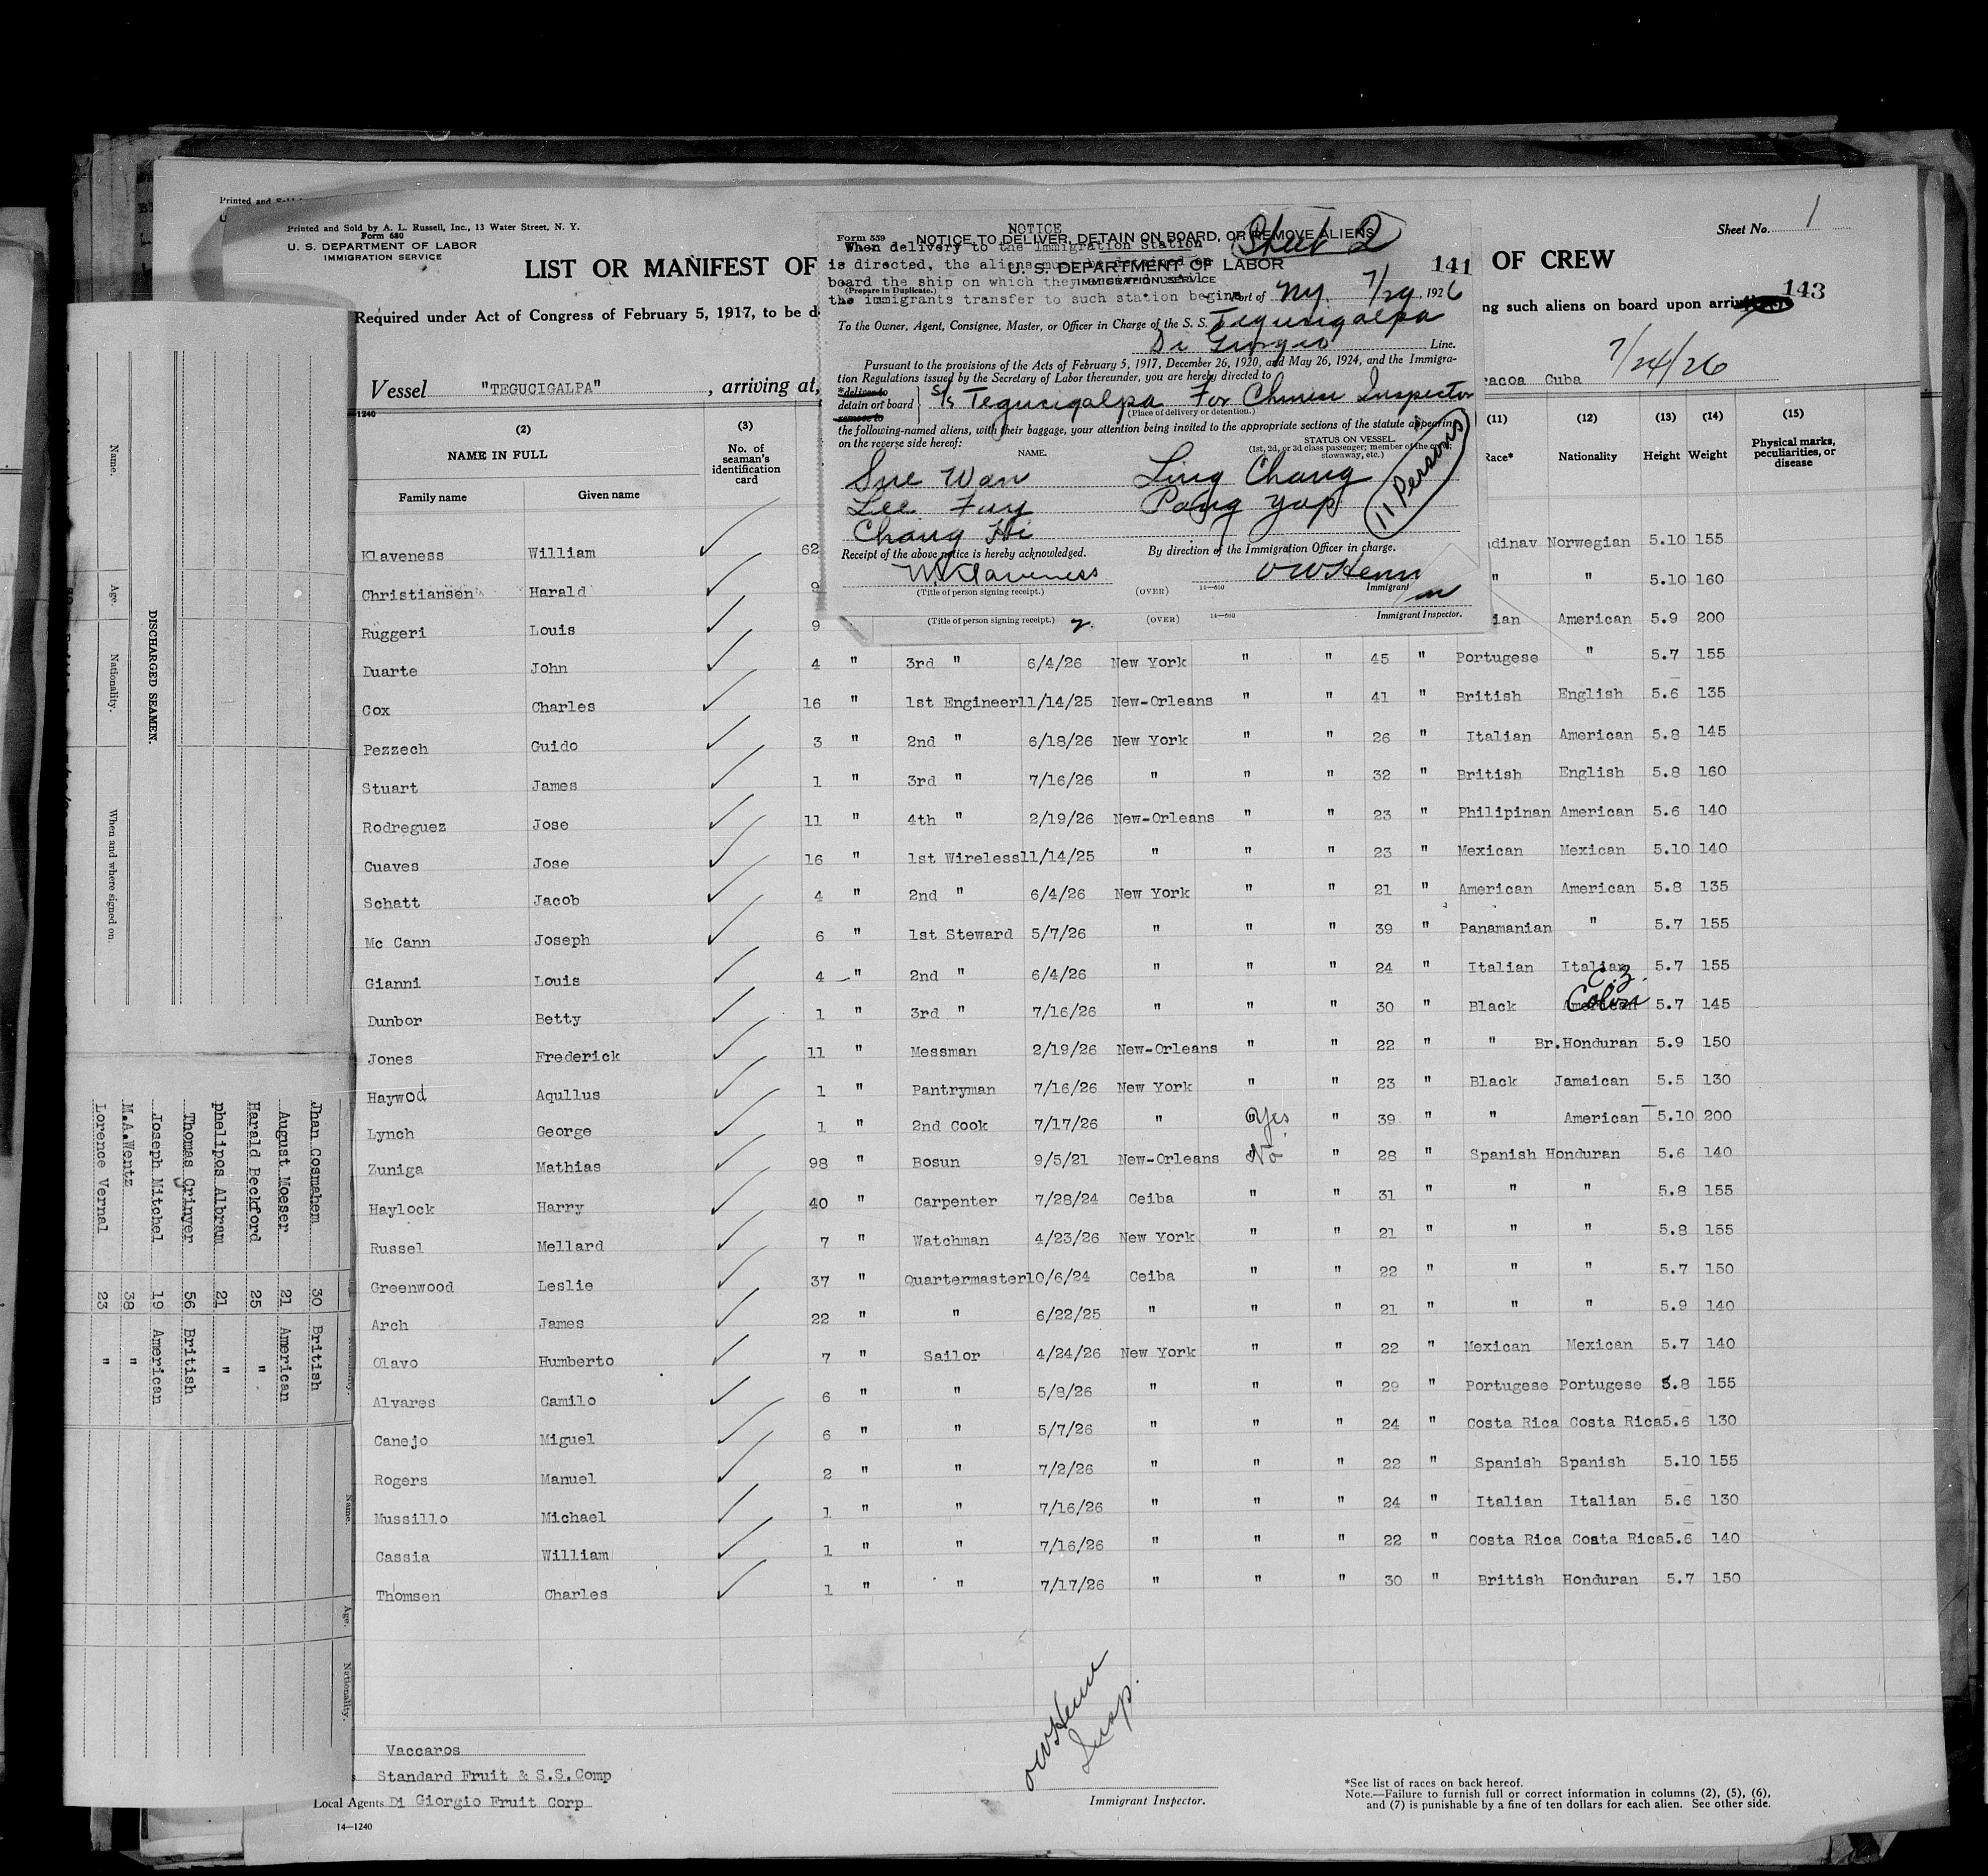 Printed and Sold by A. L. Russell, Inc., 13 Water Street, N. Y.
Form 680
U. S. DEPARTMENT OF LABOR
IMMIGRATION SERVICE
LIST OR MANIFEST OF
OF CREW
Sheet No. 1
143
Required under Act of Congress of February 5, 1917, to be d
ng such aliens on board upon arri
Vessel "TEGUCIGALPA", arriving at,
racoa Cuba 7/24/26
NOTICE
When delivery to the Immigration Station
is directed, the aliens must be detained on
board the ship on which they arrived until
the immigrants transfer to such station begins.
Form 559
NOTICE TO DELIVER, DETAIN ON BOARD, OR REMOVE ALIENS
Sheet 2
U. S. DEPARTMENT OF LABOR
IMMIGRATION SERVICE
141
(Prepare in Duplicate.)
Port of N.Y. 7/29, 1926
To the Owner, Agent, Consignee, Master, or Officer in Charge of the S. S. Tegucigalpa
Di Giorgio Line.
Pursuant to the provisions of the Acts of February 5, 1917, December 26, 1920, and May 26, 1924, and the Immigra-
tion Regulations issued by the Secretary of Labor thereunder, you are hereby directed to
*deliver to
detain on board
remove to
S/S Tegucigalpa For Chinese Inspector
(Place of delivery or detention.)
the following-named aliens, with their baggage, your attention being invited to the appropriate sections of the statute appearing
on the reverse side hereof:
NAME.
STATUS ON VESSEL
(1st, 2d, or 3d class passenger; member of the crew; stowaway, etc.)
Sue Wan Ling Chang
Lee Fuy Pong Yap
Chang Hi
(11 Persons)
Receipt of the above notice is hereby acknowledged.
By direction of the Immigration Officer in charge.
W. Klaveness
(Title of person signing receipt.)
(OVER)
14—680
Immigrant
(Title of person signing receipt.)
(OVER)
14—680
Immigrant Inspector.
1240
(2) NAME IN FULL
Family name Given name
(3) No. of seaman's identification card
(11) Race*
(12) Nationality
(13) Height
(14) Weight
(15) Physical marks, peculiarities, or disease
Klaveness William 62 dinav Norwegian 5.10 155
Christiansen Harald 9 " " 5.10 160
Ruggeri Louis 9 ian American 5.9 200
Duarte John 4 " 3rd " 6/4/26 New York " " 45 " Portugese " 5.7 155
Cox Charles 16 " 1st Engineer 11/14/25 New-Orleans " " 41 " British English 5.6 135
Pezzech Guido 3 " 2nd " 6/18/26 New York " " 26 " Italian American 5.8 145
Stuart James 1 " 3rd " 7/16/26 " " " 32 " British English 5.8 160
Rodreguez Jose 11 " 4th " 2/19/26 New-Orleans " " 23 " Philipinan American 5.6 140
Cuaves Jose 16 " 1st Wireless 11/14/25 " " " 23 " Mexican Mexican 5.10 140
Schatt Jacob 4 " 2nd " 6/4/26 New York " " 21 " American American 5.8 135
Mc Cann Joseph 6 " 1st Steward 5/7/26 " " " 39 " Panamanian " 5.7 155
Gianni Louis 4 " 2nd " 6/4/26 " " " 24 " Italian Italian 5.7 155
Dunbor Betty 1 " 3rd " 7/16/26 " " " 30 " Black American C.Z. Colon 5.7 145
Jones Frederick 11 " Messman 2/19/26 New-Orleans " " 22 " " Br.Honduran 5.9 150
Haywod Aqullus 1 " Pantryman 7/16/26 New York " " 23 " Black Jamaican 5.5 130
Lynch George 1 " 2nd Cook 7/17/26 " Yes " 39 " " American 5.10 200
Zuniga Mathias 98 " Bosun 9/5/21 New-Orleans No " 28 " Spanish Honduran 5.6 140
Haylock Harry 40 " Carpenter 7/28/24 Ceiba " " 31 " " " 5.8 155
Russel Mellard 7 " Watchman 4/23/26 New York " " 21 " " " 5.8 155
Greenwood Leslie 37 " Quartermaster 10/6/24 Ceiba " " 22 " " " 5.7 150
Arch James 22 " " 6/22/25 " " " 21 " " " 5.9 140
Olavo Humberto 7 " Sailor 4/24/26 New York " " 22 " Mexican Mexican 5.7 140
Alvares Camilo 6 " " 5/8/26 " " " 29 " Portugese Portugese 5.8 155
Canejo Miguel 6 " " 5/7/26 " " " 24 " Costa Rica Costa Rica 5.6 130
Rogers Manuel 2 " " 7/2/26 " " " 22 " Spanish Spanish 5.10 155
Mussillo Michael 1 " " 7/16/26 " " " 24 " Italian Italian 5.6 130
Cassia William 1 " " 7/16/26 " " " 22 " Costa Rica Costa Rica 5.6 140
Thomsen Charles 1 " " 7/17/26 " " " 30 " British Honduran 5.7 150
Vaccaros
Standard Fruit & S.S.Comp
Local Agents Di Giorgio Fruit Corp
14—1240
Insp.
Immigrant Inspector.
*See list of races on back hereof.
Note.—Failure to furnish full or correct information in columns (2), (5), (6),
and (7) is punishable by a fine of ten dollars for each alien. See other side.
DISCHARGED SEAMEN.
Name. Age. Nationality. When and where signed on.
Name. Age. Nationality.
Jhan Cosmahem 30 British
August Moeser 21 American
Harald Beckford 25 "
phelipos Albram 21 "
Thomas Grinyer 56 British
Joseph Mitchel 19 American
M.A.Wentz 38 "
Lorence Vernal 23 "